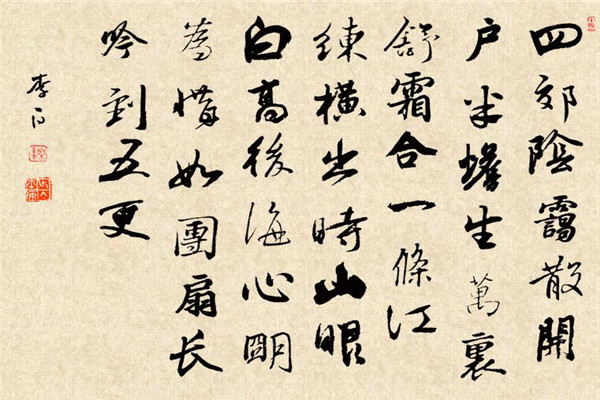 四郊陰靄散開
户半蟾生萬裏
舒霜合一條江
練橫出時山眼
白高後海心明
為惜如團扇长
吟到五更
李白